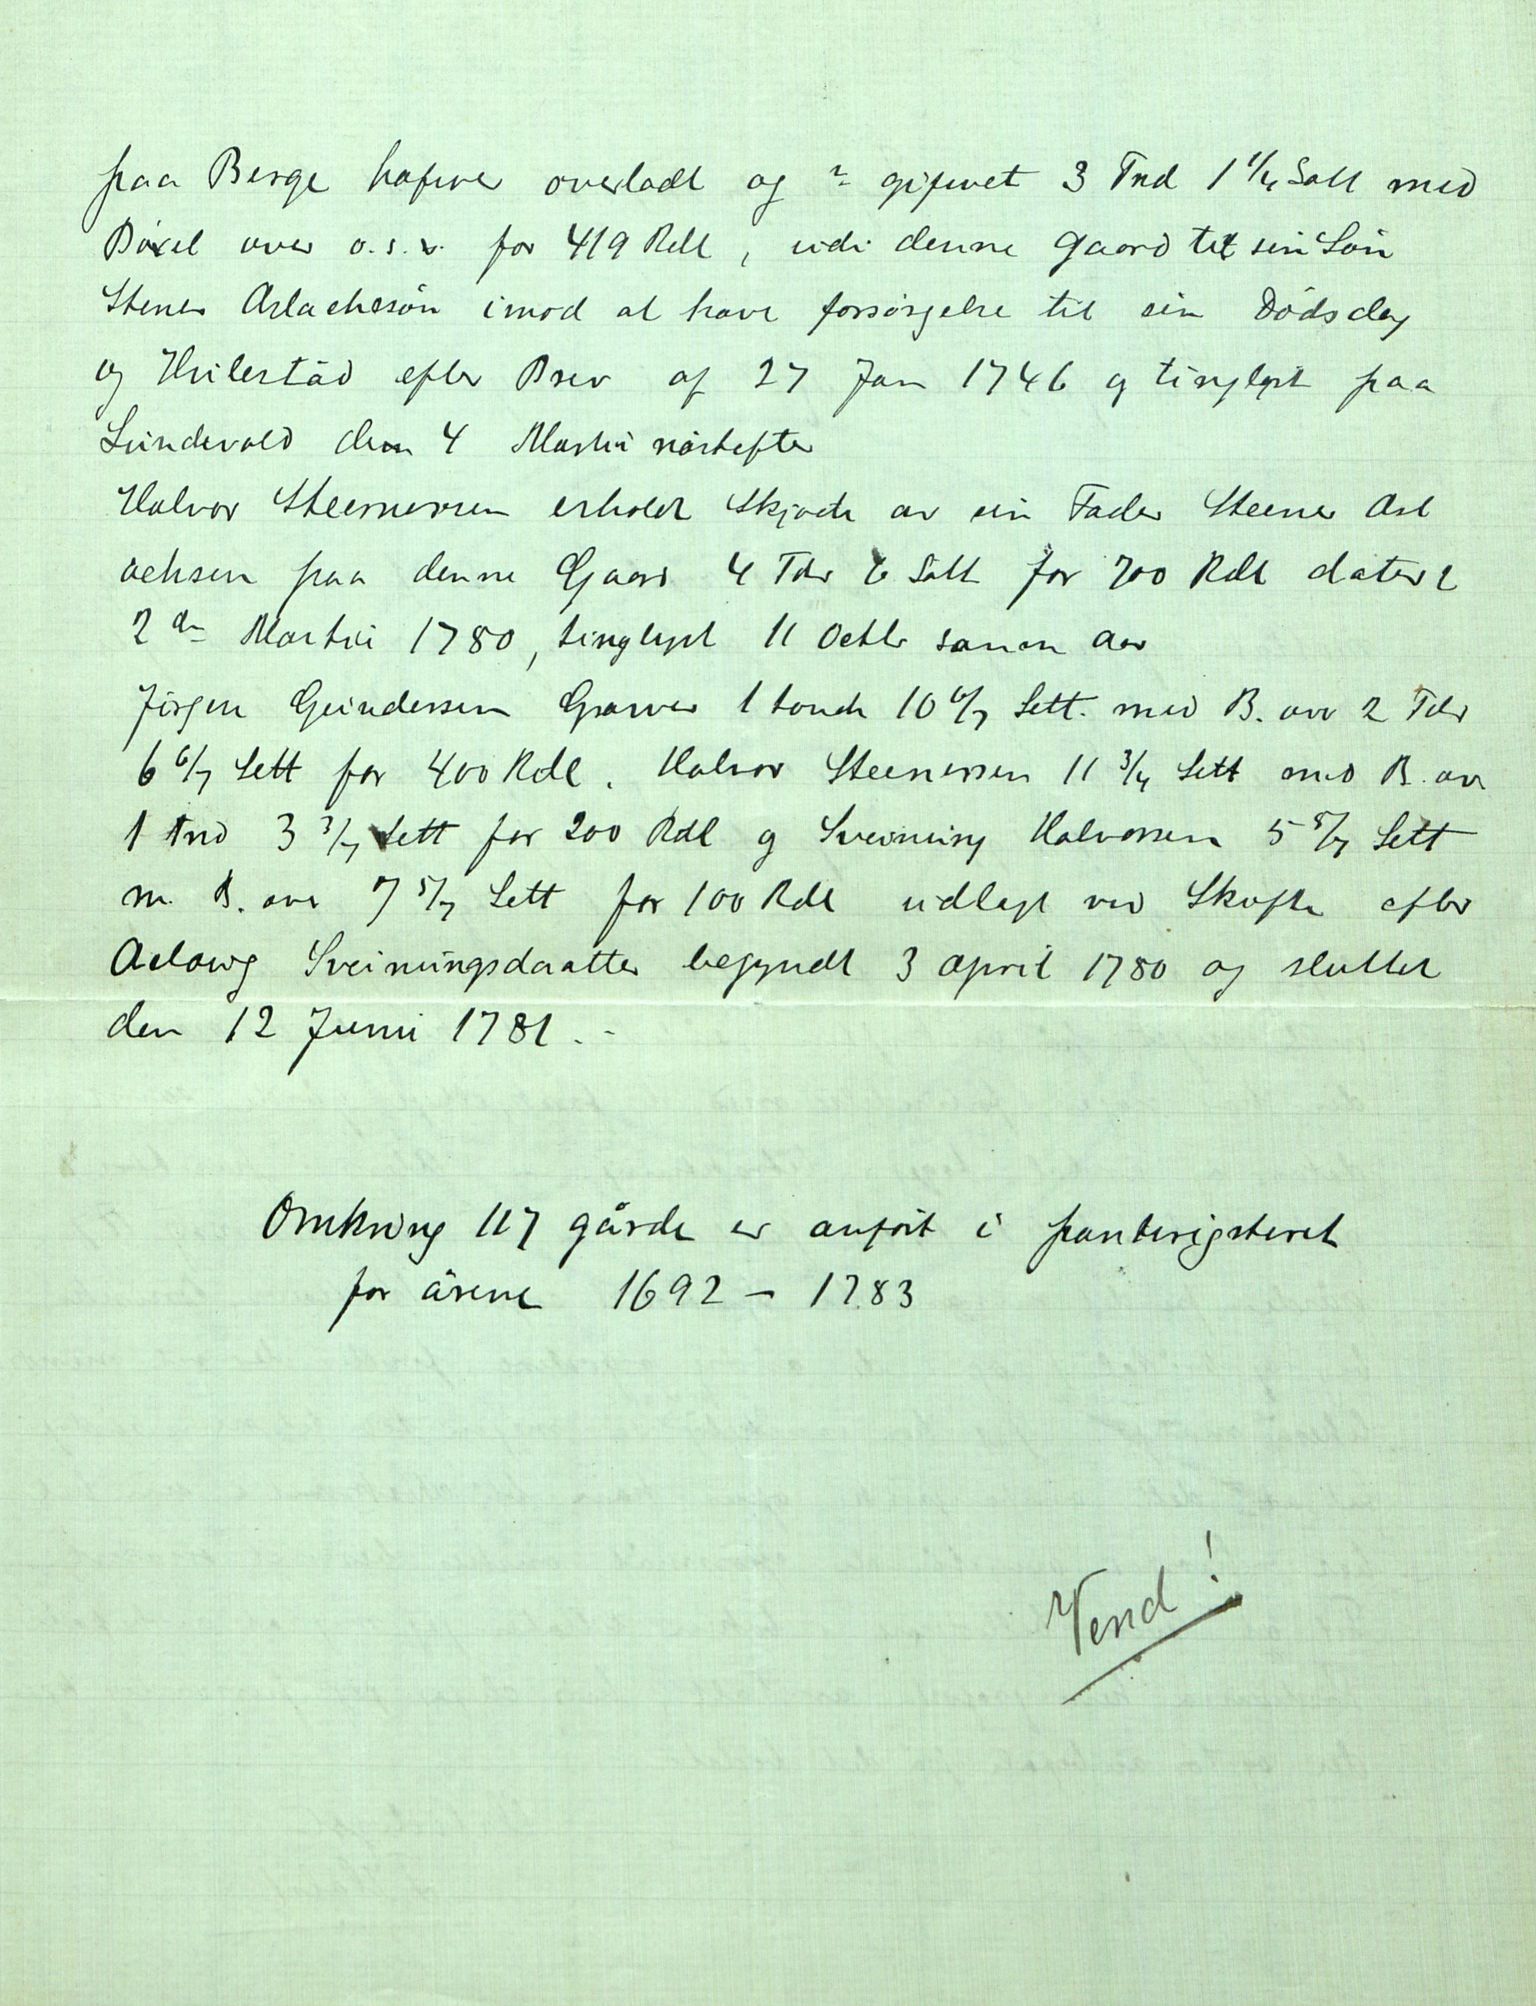 paa Berge hafver overladt og = gifvet 3 Tnd 1 1/4 Satt med
Böxel over o.s.v. for 419 Rdl, udi denne Gaard til sin Sön
Stener Aslachesön imod at have forsörgelse til sin Dödsdag
og Hvilestäd efter Brev af 27 Jan 1746 og tinglyst paa
Lundevald den 4 Martii näst efter
Halvor Steenersen erholdt Skjöde av sin Fader Steener Asl
achsen paa denne Gaard 4 Tdr 6 Satt for 700 Rdl datert
2 den Martii 1780, tinglyst 11 Octbr samm Aar
Jörgen Gundersen Graver 1 tönde 10 6/7 Sett. med B. over 2 Tdr
6 6/7 Sett for 400 Rdl. Halvor Steenersen 11 3/4 Sett med B. over
1 Tnd 3 3/7 Sett for 200 Rdl og Sveinung Halvorsen 5 5/7 Sett
m. B. over 7 5/7 Sett for 100 Rdl udlagt ved Skifte efter
Aslowg Sveinungsdaatter begyndt 3 April 1780 og sluttet
den 12 Junii 1781. -
Omkring 117 gårde er anfört i panteregisteret
for årene 1692 - 1783
Vend!